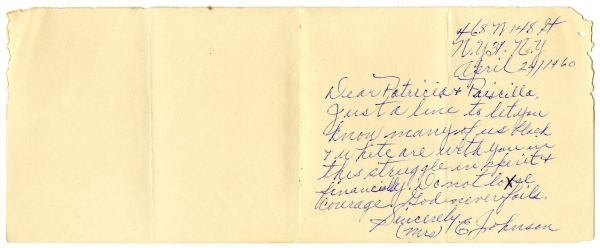 468 W 148 St
N.Y 31. N.Y
April 24/1960
Dear Patricia & Priscilla,
Just a line to let you
know many of us black
& white are with you in
this struggle in spirit &
financially. Do not lose
courage. God never fails.
Sincerely
(Mrs) E Johnson